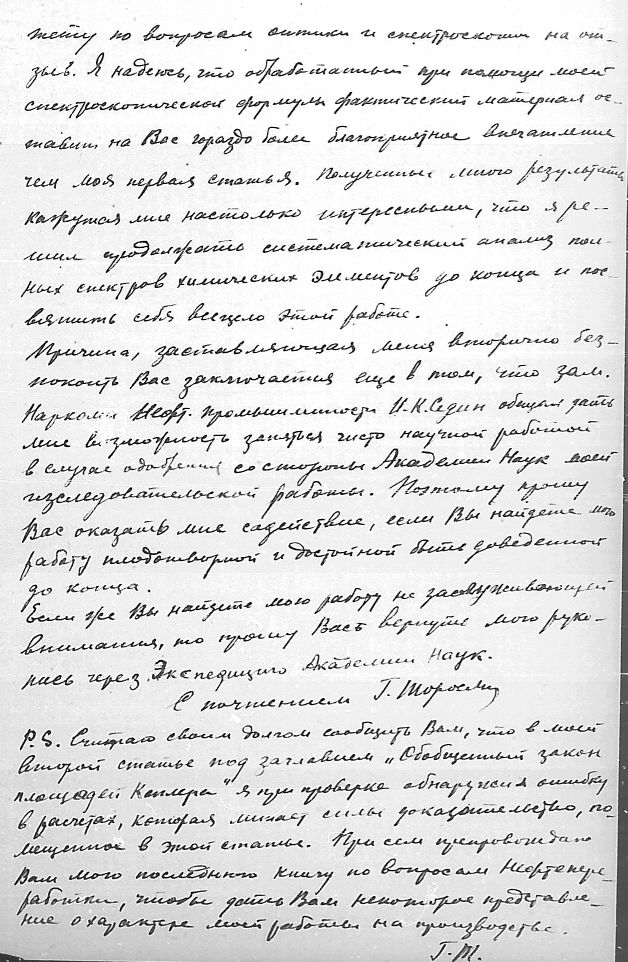 жету по вопросам оптики и спектроскопии на от-
зыв. Я надеюсь, что обработанный при помощи моей
спектроскопической формулы фактический материал ос-
тавит на Вас гораздо более благоприятное впечатление
чем моя первая статья. Полученные мною результаты
кажутся мне настолько интересными, что я ре-
шил продолжать систематический анализ пол-
ных спектров химических элементов до конца и пос-
вятить себя всецело этой работе.
Причина, заставляющая меня вторично без-
покоить Вас заключается еще в том, что зам.
Наркома Нефт. промышленности И.К. Седин обещал дать
мне возможность заняться чисто научной работой
в случае одобрения со стороны Академии Наук моей
исследовательской работы. Поэтому прошу
Вас оказать мне содействие, если Вы найдете мою
работу плодотворной и достойной быть доведенной
до конца.
Если же Вы найдете мою работу не заслуживающей
внимания, то прошу Вас вернуть мою руко-
пись через Экспедицию Академии Наук.
С почтением Г.
P.S. Считаю своим долгом сообщить Вам, что в моей
второй статье под заглавием „Обобщенный закон
площадей Кеплера" я при проверке обнаружил ошибку
в расчетах, которая лишает силы доказательство, по-
мещенное в этой статье. При сем препровождаю
Вам мою последнюю книгу по вопросам Нефтепере-
работки, чтобы дать Вам некоторое представле-
ние о характере моей работы на производстве.
Г.Т.